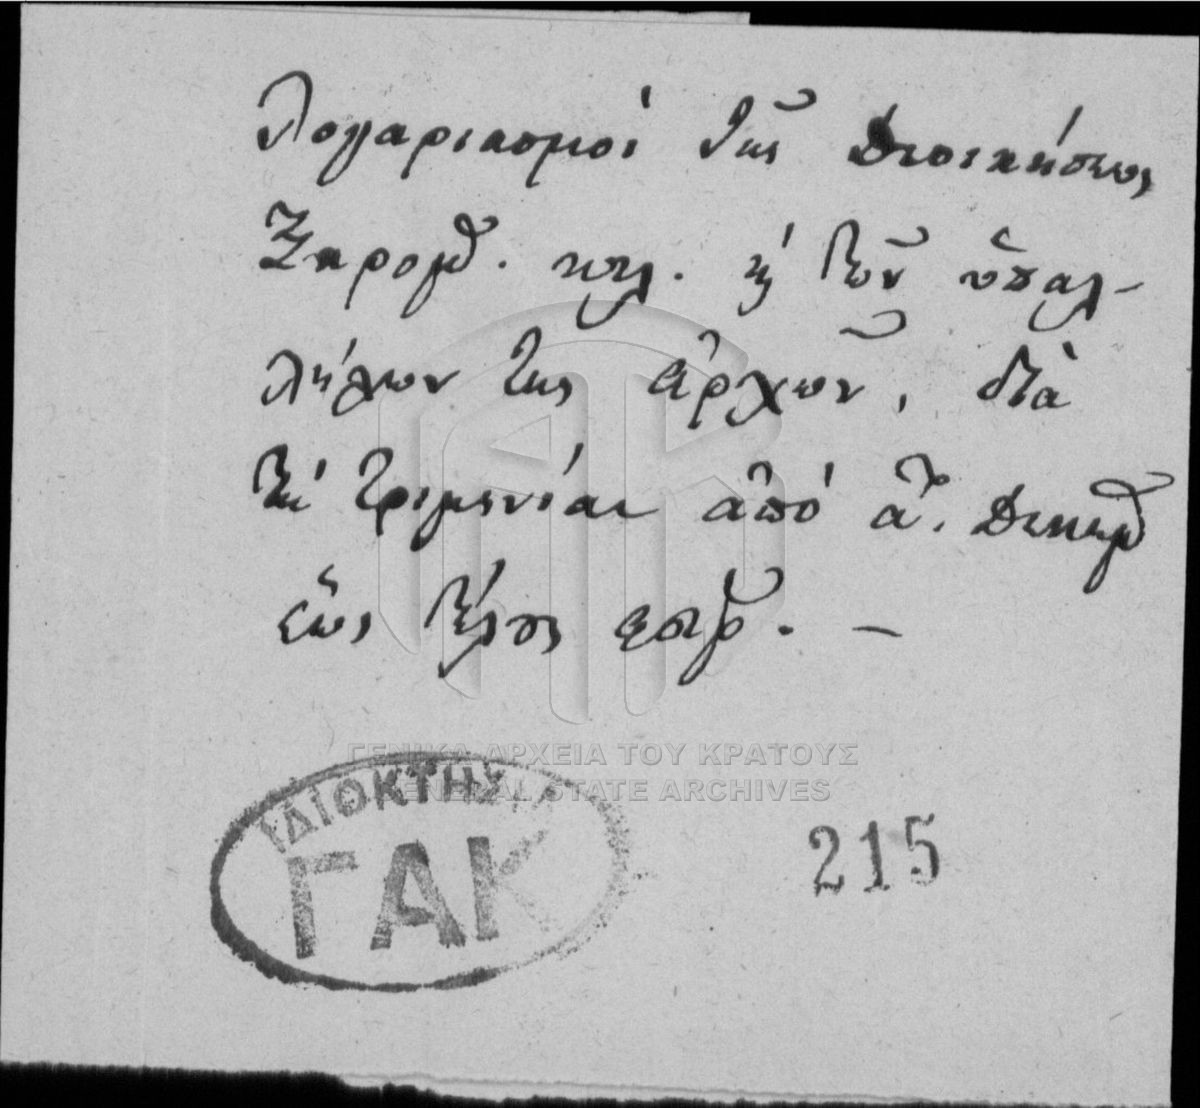 Λογαριασμοί τῆς Διοικήσεως
Ξηρομ. κτλ. κ τῶν ὑπαλ-
λήλων της ἀρχῶν, διὰ
τριμηνίαν ἀπό α. Δεκεμβ
ἕως τέλος
ΓΕΝΙΚΑ ΑΡΧΕΙΑ ΤΟΥ ΚΡΑΤΟΥΣ
GENERAL STATE ARCHIVES
ΙΔΙΟΚΤΗΣΙΑ
ΓΑΚ
215